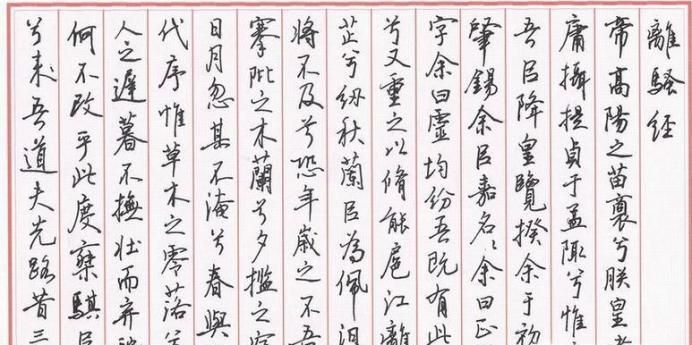 離騷经
帝高陽之苗裔兮朕皇
庸攝提貞于孟陬兮惟
吾㠯降皇覽揆余于初
肇錫余㠯嘉名:余曰正
字余曰靈均紛吾既有此
兮又重之以脩能扈江離
芷兮紉秋蘭㠯為佩汨
將不及兮恐年歲之不吾
搴阰之木蘭兮夕檻之宿
日月忽其不淹兮春與
代序惟草木之零落兮
人之遲暮不撫壯而弃
何不改乎此度椉騏㠯
兮来吾道夫先路昔三